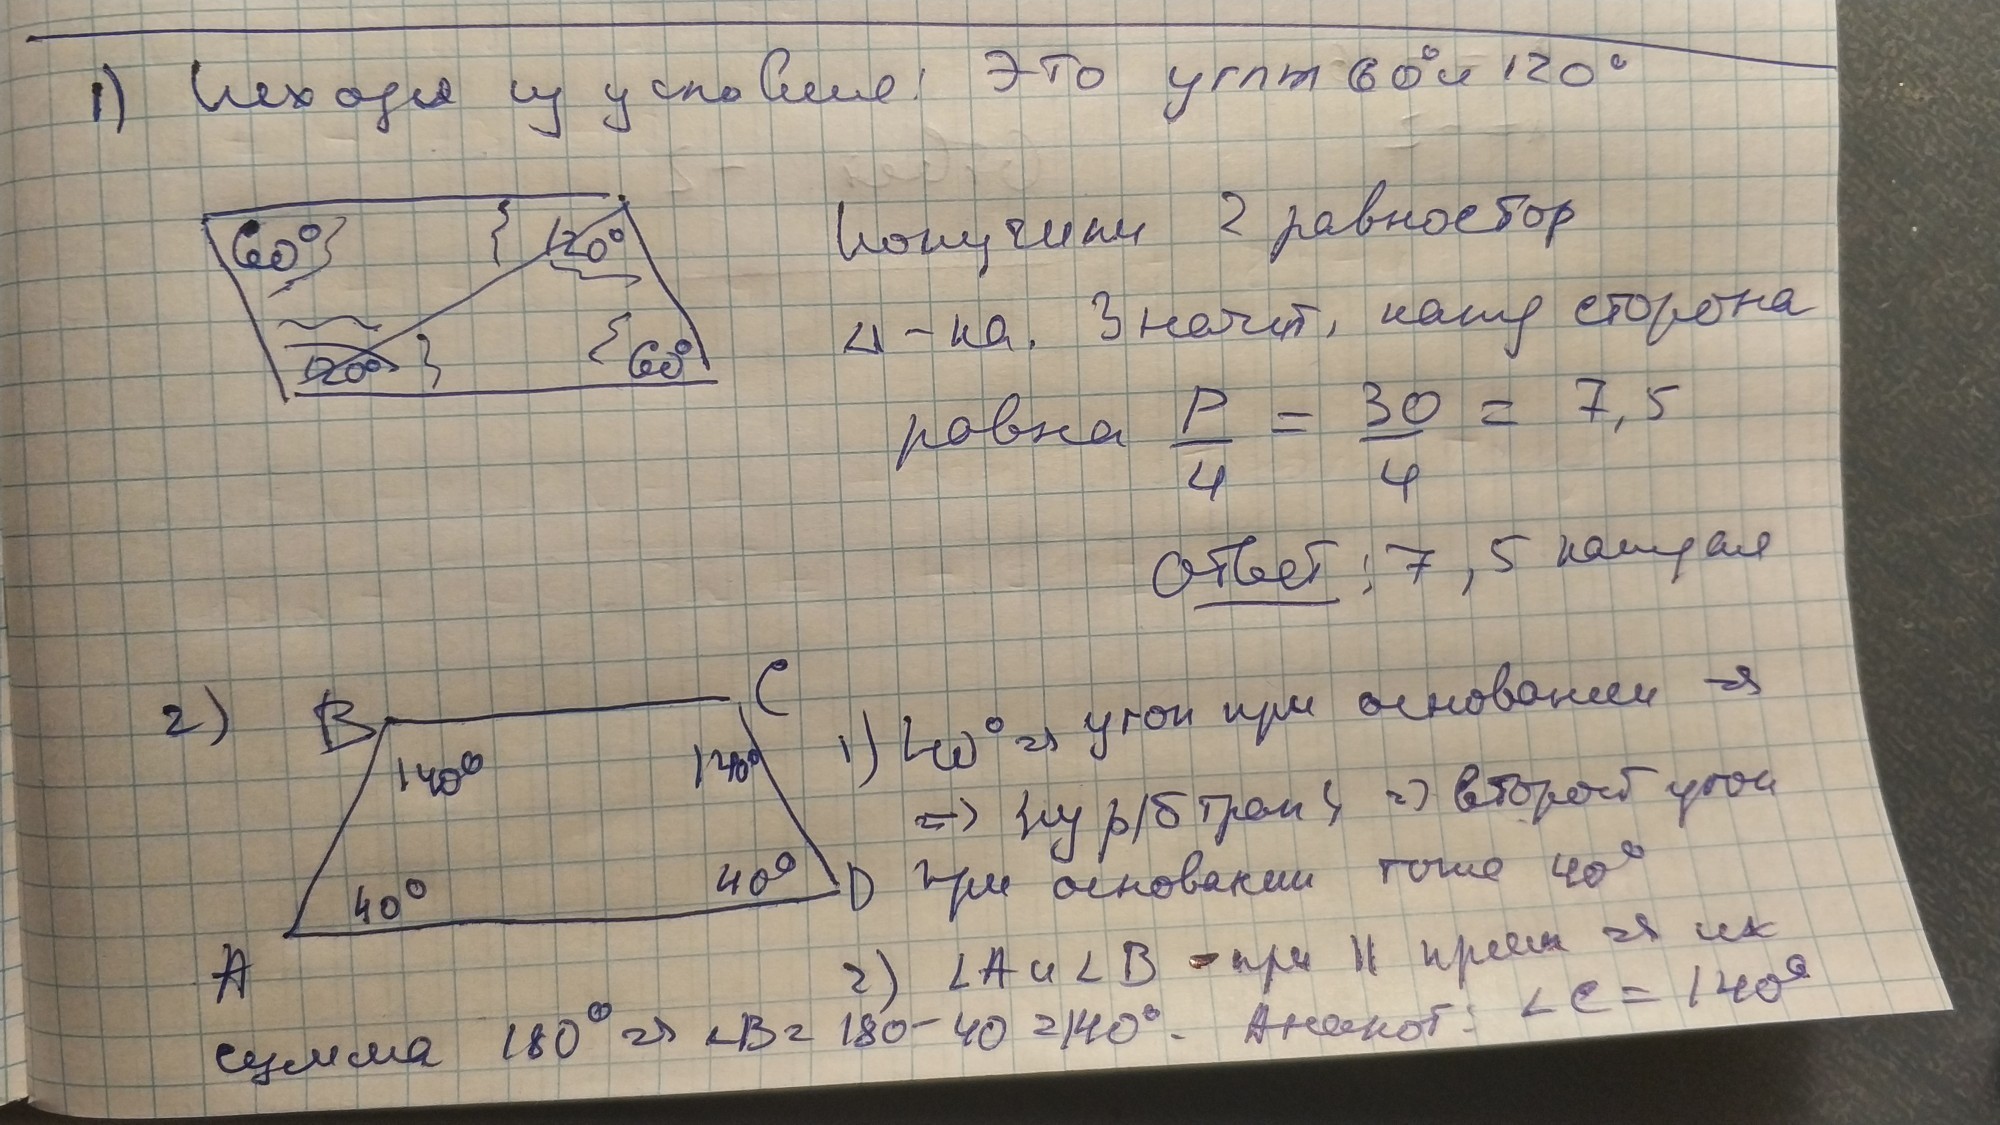 1) Исходя из условия: Это углы 60° и 120°
60° 120°
120° 60°
Получили 2 равностор
Δ-ка. Значит, кажд сторона
равна P/4 = 30/4 = 7,5
Ответ: 7,5 каждая
2) B C
140° 140°
40° 40°
A D
1) ∠40° => угол при основании =>
=> из р/б трап, => второй угол
при основании тоже 40°
2) ∠A и ∠B - при || прям => их
сумма 180° => ∠B = 180 - 40 = 140°. Аналог: ∠C = 140°